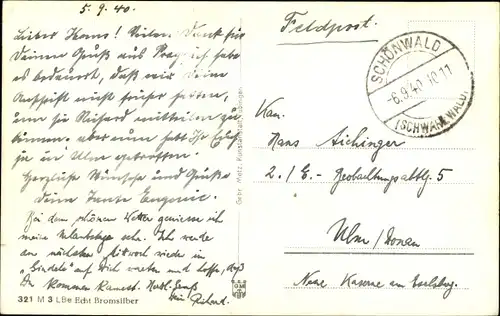 5.9.40.
Lieber Hans! Vielen Dank für
Deinen Gruß aus Prag, ich habe
es bedauert, daß wir Deine
Anschrift nicht früher hatten,
um sie Richard mitteilen zu
können. aber nun habt Ihr Euch
ja in Ulm getroffen.
Herzliche Wünsche und Grüße
Deine Tante Eugenie.
Bei dem schönen Wetter genieße ich
meine Urlaubstage sehr. Ich werde
am nächsten Mittwoch wieder in
auf Dich warten und hoffe, daß
Du kommen kannst. Herzl. Gruß
Dein Richard.
321 M 3 LBe Echt Bromsilber
Gebr. Metz, Kunstanstalt, Tübingen
Feldpost.
SCHÖNWALD
-6.9.40.10-11
(SCHWARZWALD)
Kan.
Hans Aichinger
2./E.- Beobachtungsabtlg. 5
Ulm/Donau
Neue Kaserne am Eselsberg.